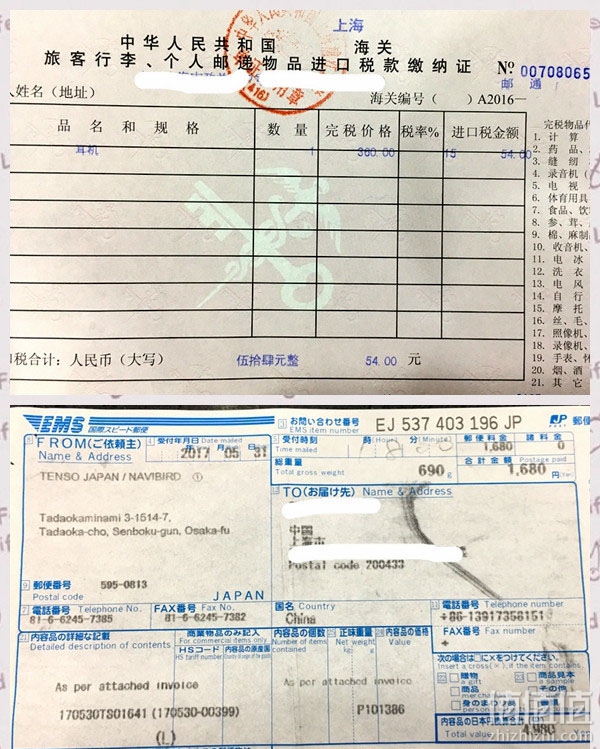 上海
中华人民共和国 海关
旅客行李、个人邮递物品进口税款缴纳证 № 00708065
邮通
人姓名(地址) 海关编号( )A2016—
品名和规格 数量 完税价格 税率% 进口税金额
耳机 1 360.00 15 54.00
完税物品
1. 计算
2. 药品、
3. 缝纫
4. 录音机(
5. 电视
6. 体育用具
7. 食品、饮
8. 参、茸、
9. 棉、麻制
10. 收音机、
11. 电冰
12. 洗衣
13. 电风
14. 自行
15. 摩托
16. 丝、毛、
17. 照像机、
18. 录像机、
19. 手表、怀
20. 烟、酒
21. 其它
税合计:人民币(大写) 伍拾肆元整 54.00 元
EMS 国際スピード郵便
お問い合わせ番号 EMS item number EJ 537 403 196 JP JP 郵便
FROM(ご依頼主) Name & Address
受付年月日 Date mailed 2017 年 05 月 31
受付時刻 Time mailed 時(Hour) 分(Minute)
郵便料金 1,680 諸料金 0
総重量 Total gross weight 690 g
合計金額 1,680 円(Yen)
TENSO JAPAN / NAVIBIRD ①
Tadaokaminami 3-1514-7,
Tadaoka-cho, Senboku-gun, Osaka-fu
TO(お届け先) Name & Address
中国
上海市
Postal code 200433
郵便番号 Postal code 595-0813
JAPAN
電話番号 Telephone No. 81-6-6245-7385
FAX番号 Fax No. 81-6-6245-7382
国名 Country China
電話番号 Telephone number +86-13917358151
FAX番号 Fax number +
内容品の詳細な記載 Detailed description of contents
商業物品のみ記入 For commercial items only
HSコード HS tariff number
内容品の原産国
内容品の個数 Number of items contained
正味重量 Net weight kg g
内容品の価格 Value
次の場合は□に×をつけてください。
Insert a cross(×), if the item contains
贈物 a gift
商品見本
商品
その他
身のまわり品
書類
As per attached invoice
170530TS01641 (170530-00399)
(L)
As per attached invoice
P101386
内容品の日本円換算合計
Total value 4,980
值值值
zhizhizhi.com